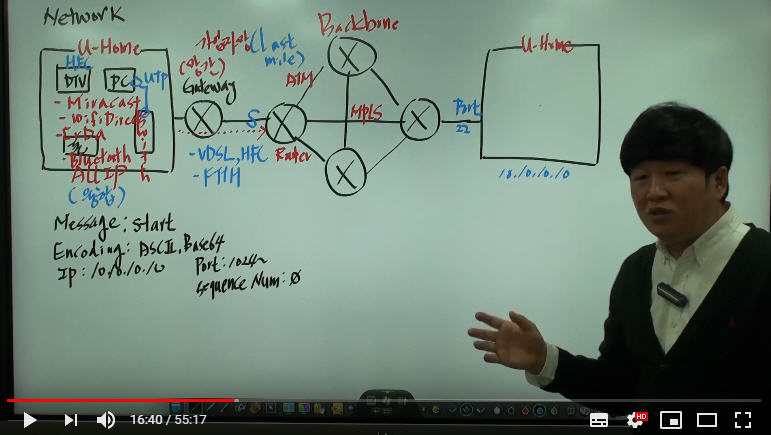 Network
U-Home
HFC
DTV
PC
UTP
- Miracast
- WifiDirect
- IrDA
- Bluetooth
All IP
Switch
가입자망 (Last mile)
Gateway
S
Router
- VDSL, HFC
- FTTH
Backbone
ATM
MPLS
Port
22
U-Home
10.10.10.10
Message: start
Encoding: ASCII, Base64
Ip: 10.10.10.10
Port: 1024~
sequence Num: 0
16:40 / 55:17
HD